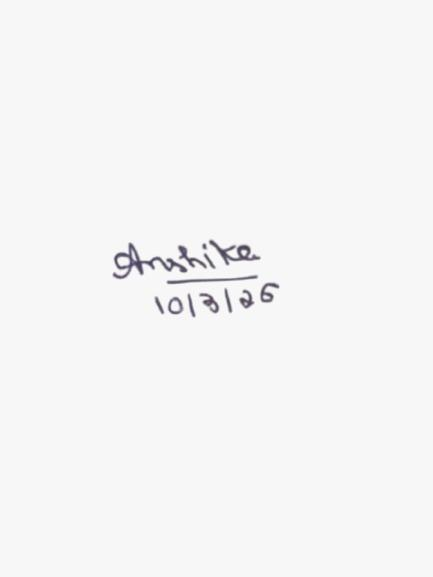 Anshika
10/3/26